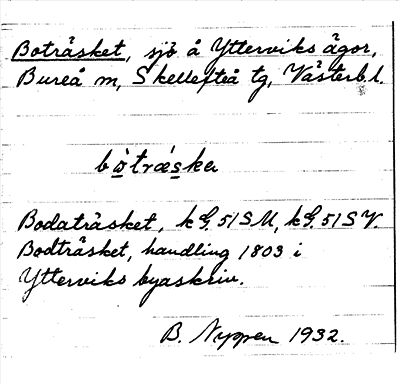 Boträsket, sjö å Ytterviks ägor,
Bureå m, Skellefteå tg, Västerb.l.
bo̱̊træ̀s̱ka
Bodaträsket, kG. 51 SM, kG. 51 SV.
Bodträsket, handling 1803 i
Ytterviks byaskriv.
B. Nyppen 1932.